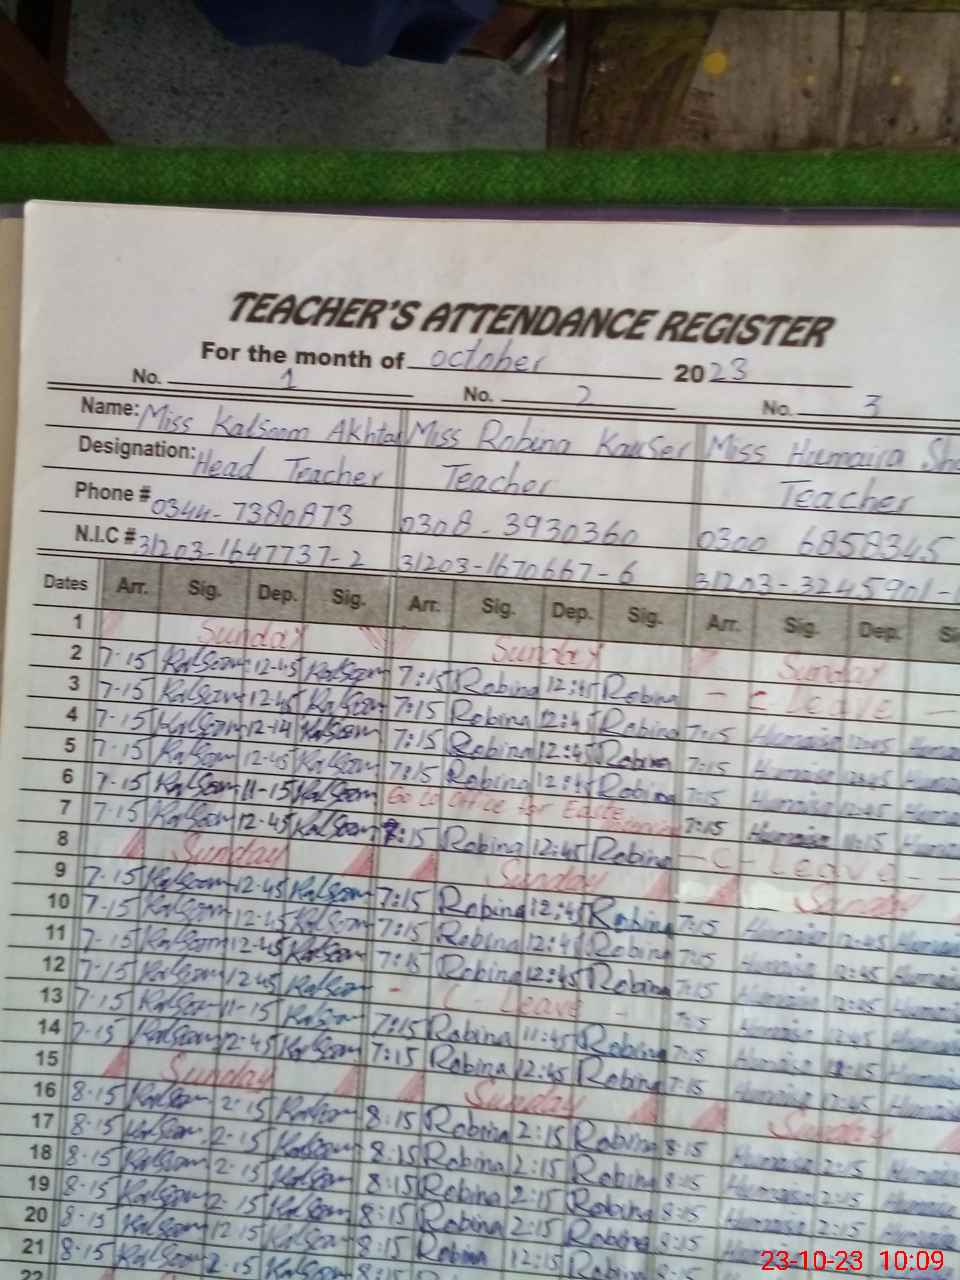 TEACHER'S ATTENDANCE REGISTER
For the month of october 2023
No. 1 No. 2 No. 3
Name: Miss Kalsoom Akhtar Miss Robina Kauser Miss Humaira
Designation: Head Teacher Teacher Teacher
Phone # 0344-7380873 0308-3930360 0300 6858345
N.I.C # 31203-1647737-2 31203-1670667-6 31203-3245901-
Dates Arr. Sig. Dep. Sig. Arr. Sig. Dep. Sig. Arr. Sig. Dep.
1 Sunday Sunday Sunday
2 7-15 Kalsoom 12-45 Kalsoom 7:15 Robina 12:45 Robina - C-Leave -
3 7-15 Kalsoom 12-45 Kalsoom 7:15 Robina 12:45 Robina 7:15 Humaira 12:45
4 7-15 Kalsoom Kalsoom 7:15 Robina 12:45 Robina 7:15 Humaira 12:45
5 7-15 Kalsoom 12-45 Kalsoom 7:15 Robina 12:45 Robina 7:15 Humaira 12:45
6 7-15 Kalsoom 11-15 Kalsoom Go to office for 7:15 Humaira 11:15
7 7-15 Kalsoom 12-45 Kalsoom 7:15 Robina 12:45 Robina - C - Leave - -
8 Sunday Sunday Sunday
9 7-15 Kalsoom 12-45 Kalsoom 7:15 Robina 12:45 Robina 7:15 Humaira 12:45
10 7-15 Kalsoom 12-45 Kalsoom 7:15 Robina 12:45 Robina 7:15 Humaira 12:45
11 7-15 Kalsoom 12-45 Kalsoom 7:15 Robina 12:45 Robina 7:15 Humaira 12:45
12 7-15 Kalsoom 12 45 Kalsoom - C - Leave - 7:15 Humaira 12:45
13 7-15 Kalsoom 11-15 Kalsoom 7:15 Robina 11:45 Robina 7:15 Humaira
14 7-15 Kalsoom 12-45 Kalsoom 7:15 Robina 12:45 Robina 7:15 Humaira 12:45
15 Sunday Sunday Sunday
16 8-15 Kalsoom 2-15 Kalsoom 8:15 Robina 2:15 Robina 8:15 Humaira 2:15
17 8-15 Kalsoom 2-15 Kalsoom 8:15 Robina 2:15 Robina 8:15 Humaira 2:15
18 8-15 Kalsoom 2-15 Kalsoom 8:15 Robina 2:15 Robina 8:15 Humaira 2:15
19 8-15 Kalsoom 2-15 Kalsoom 8:15 Robina 2:15 Robina 8:15
20 8-15 Kalsoom 12-15 Kalsoom 8:15 Robina 12:15
21 8-15 Kalsoom 2-15
22
23-10-23 10:09